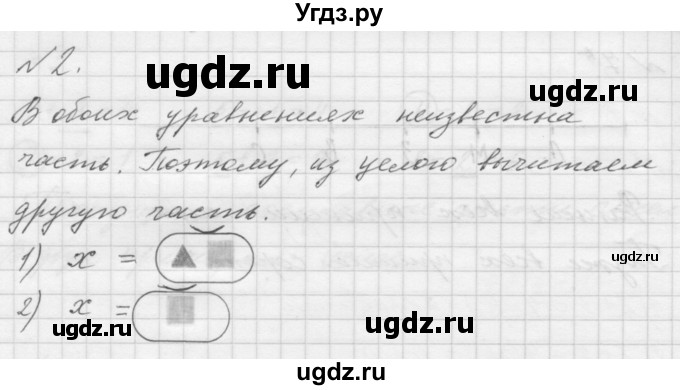 Угдз.ру
№2.
ugdz.ru
В обоих уравнениях неизвестна
часть. Поэтому, из целого вычитаем
другую часть.
1) x =
ugdz.ru
2) x =
ugdz.ru
ugdz.ru
ugdz.ru